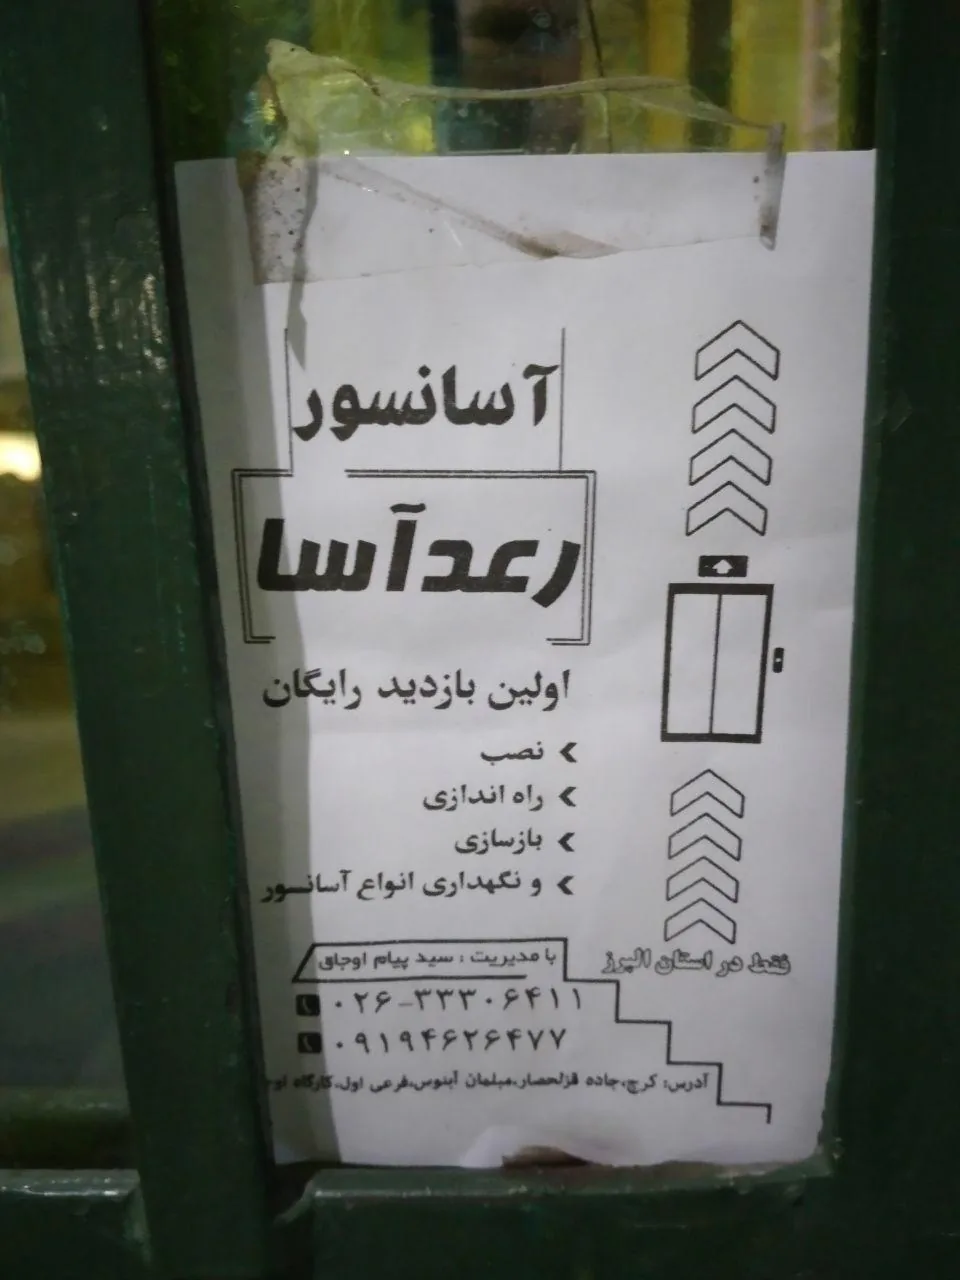 آسانسور
رعدآسا
اولین بازدید رایگان
نصب
راه اندازی
بازسازی
و نگهداری انواع آسانسور
فقط در استان البرز
با مدیریت : سید پیام اوجاق
۰۲۶-۳۳۳۰۶۴۱۱
۰۹۱۹۴۶۲۶۴۷۷
آدرس: کرج،جاده قزلحصار،مبلمان آبنوس،فرعی اول،کارگاه